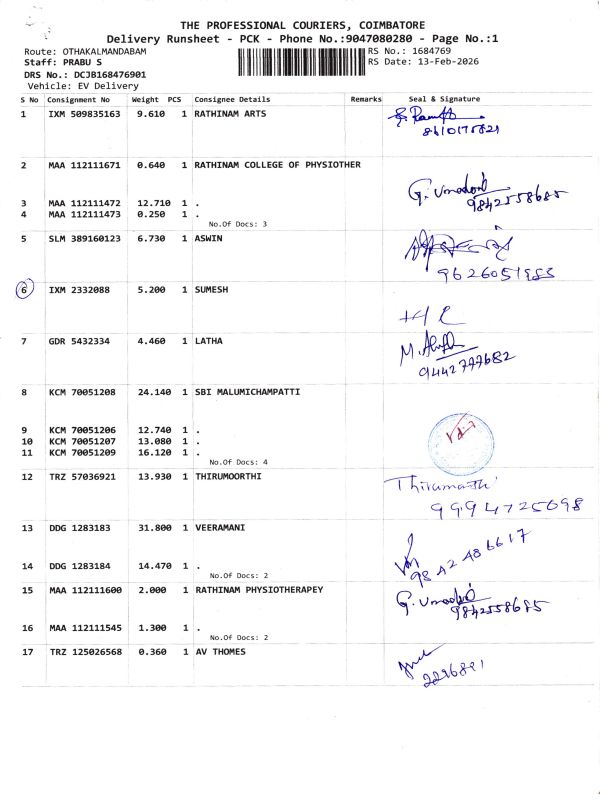 THE PROFESSIONAL COURIERS, COIMBATORE
Delivery Runsheet - PCK - Phone No.:9047080280 - Page No.:1
Route: OTHAKALMANDABAM RS No.: 1684769
Staff: PRABU S RS Date: 13-Feb-2026
DRS No.: DCJB168476901
Vehicle: EV Delivery
S No Consignment No Weight PCS Consignee Details Remarks Seal & Signature
1 IXM 509835163 9.610 1 RATHINAM ARTS
2 MAA 112111671 0.640 1 RATHINAM COLLEGE OF PHYSIOTHER
9842558685
3 MAA 112111472 12.710 1 .
4 MAA 112111473 0.250 1 .
No.Of Docs: 3
5 SLM 389160123 6.730 1 ASWIN
9626051983
6 IXM 2332088 5.200 1 SUMESH
7 GDR 5432334 4.460 1 LATHA
9442777682
8 KCM 70051208 24.140 1 SBI MALUMICHAMPATTI
9 KCM 70051206 12.740 1 .
10 KCM 70051207 13.080 1 .
11 KCM 70051209 16.120 1 .
No.Of Docs: 4
12 TRZ 57036921 13.930 1 THIRUMOORTHI
9994725698
13 DDG 1283183 31.800 1 VEERAMANI
9842486617
14 DDG 1283184 14.470 1 .
No.Of Docs: 2
15 MAA 112111600 2.000 1 RATHINAM PHYSIOTHERAPEY
9842558685
16 MAA 112111545 1.300 1 .
No.Of Docs: 2
17 TRZ 125026568 0.360 1 AV THOMES